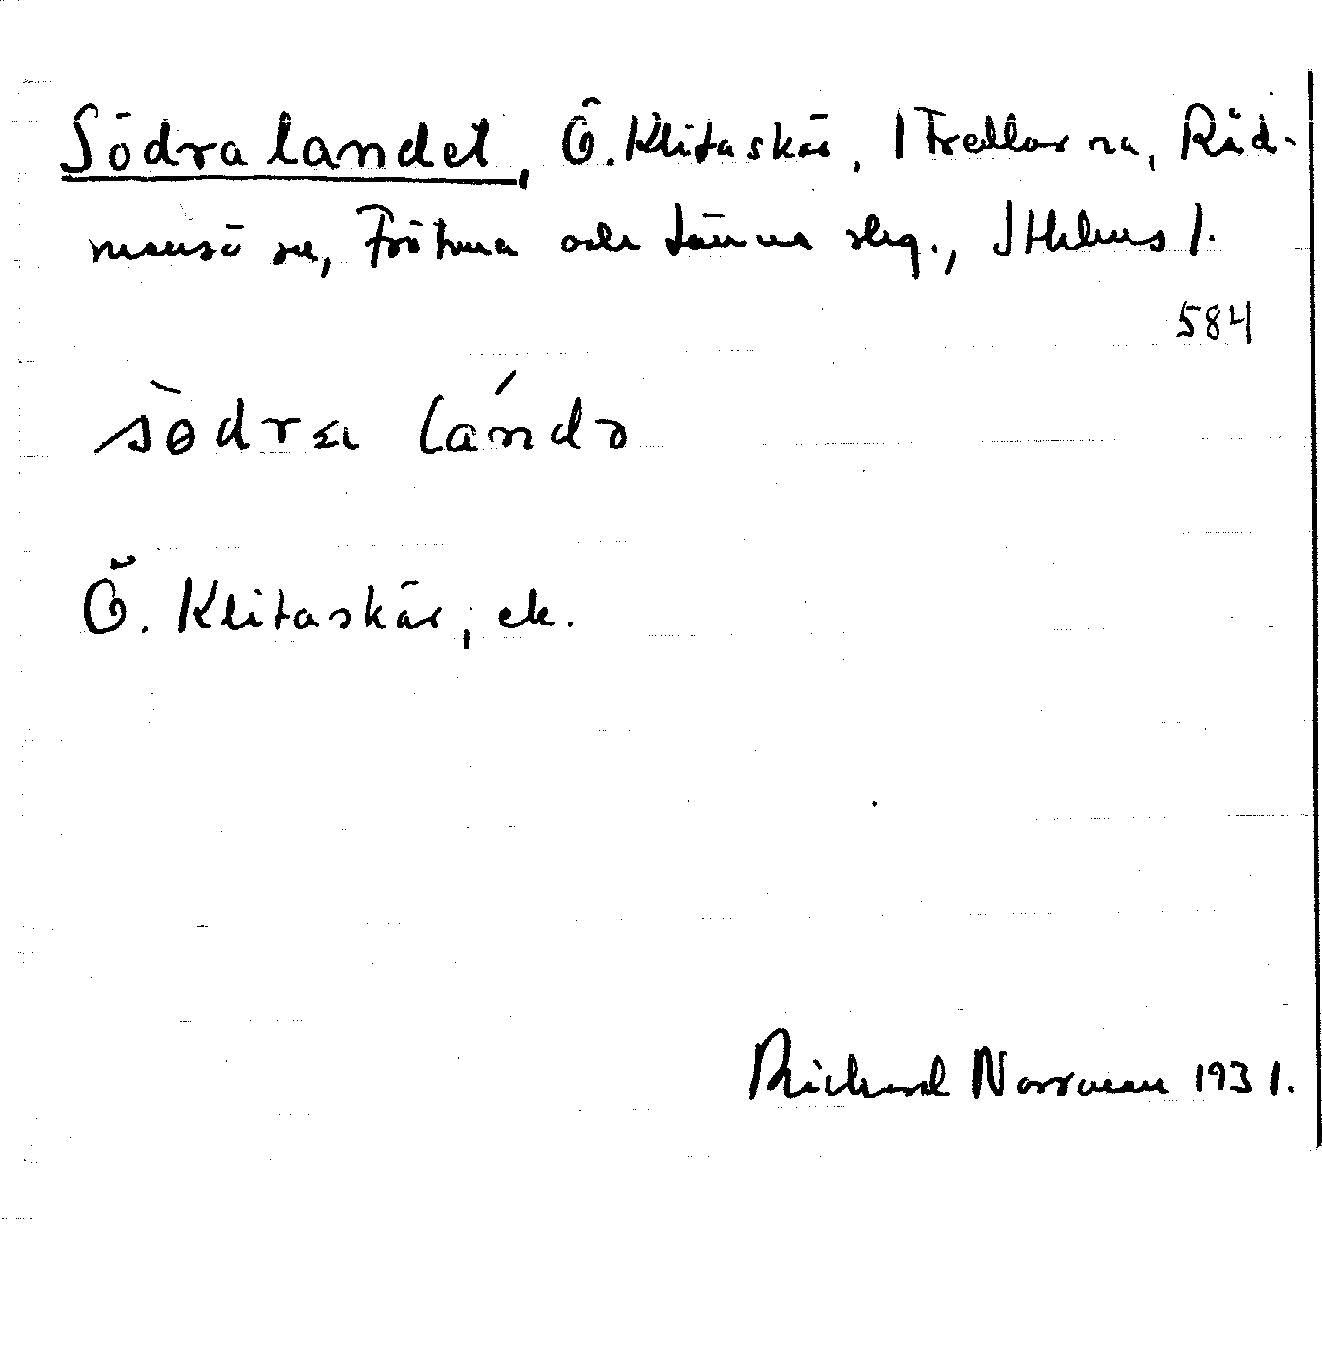 Södra landet, Ö. Klitaskär, i Trellarna, Råd-
mansö sn, Frötuna och Länna skg., Sthlms l.
584
sö̀dra lánd
Ö. Klitaskär, ek.
Richard Norrman 1931.